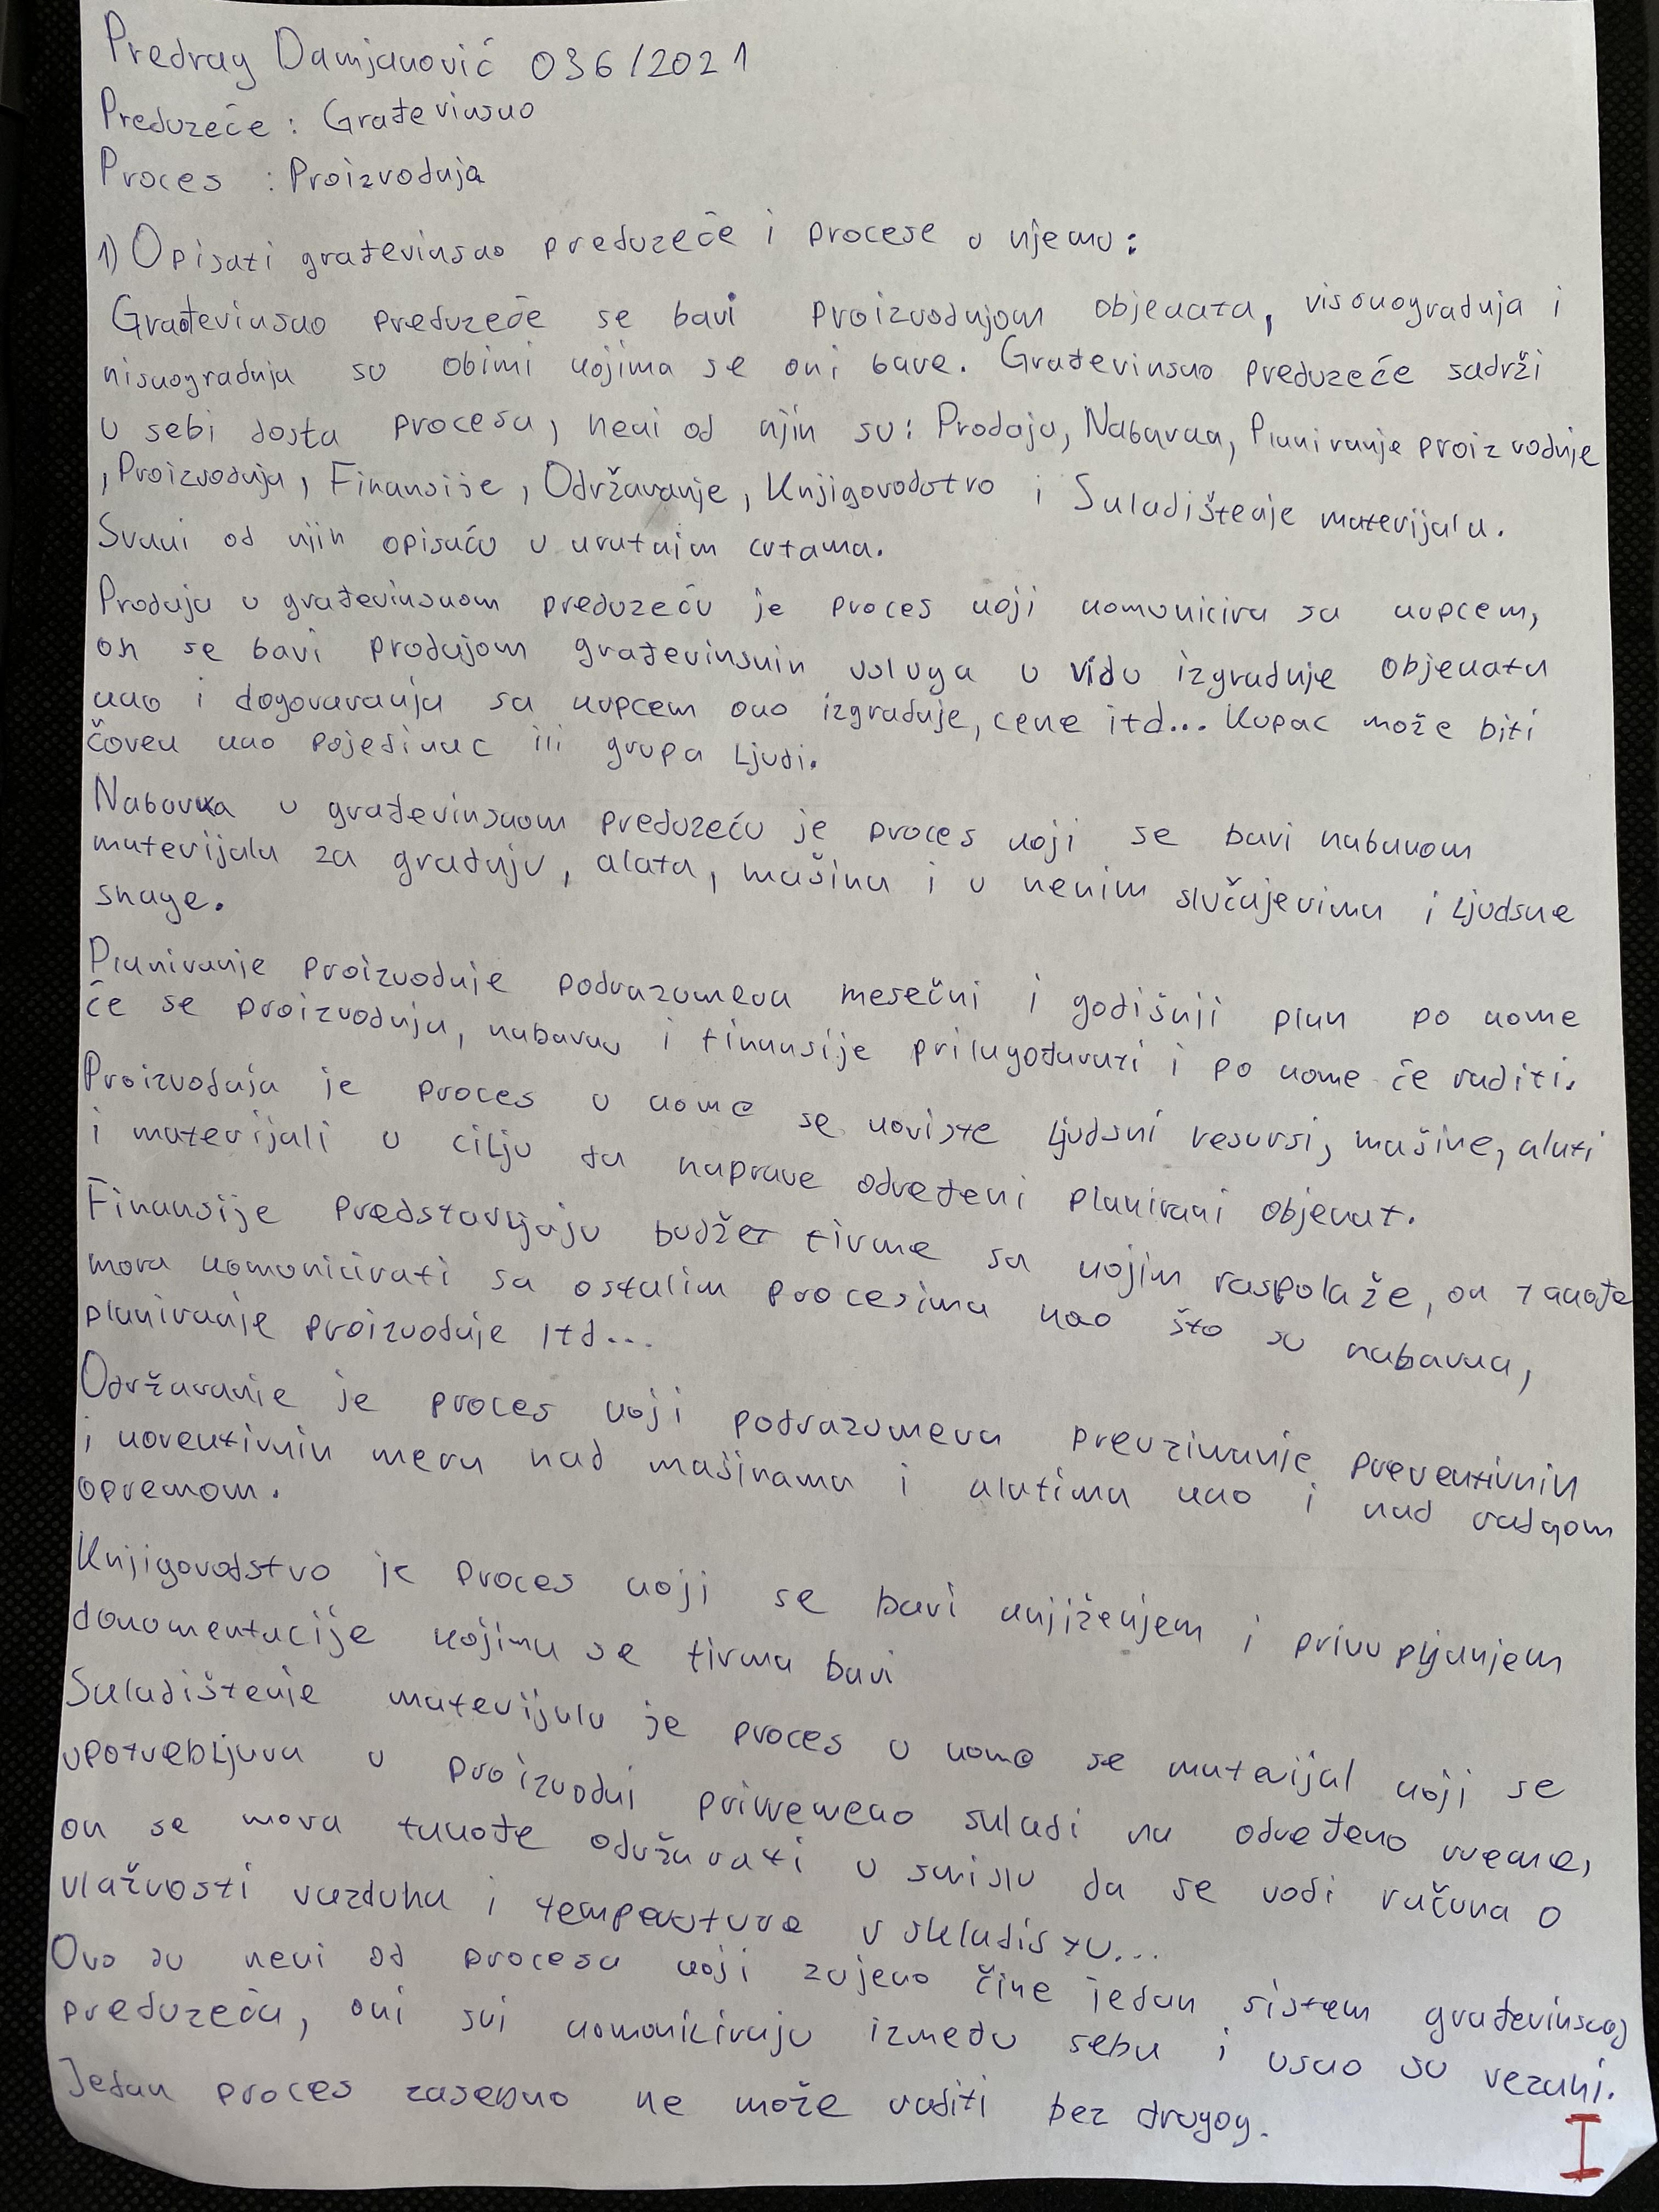 Predrag Damjanović 036/2021
Preduzeće : Građevinsko
Proces : Proizvodnja
1) Opisati građevinsko preduzeće i procese u njemu :
Građevinsko preduzeće se bavi proizvodnjom objekata, visokogradnja i
niskogradnja su obimi kojima se oni bave. Građevinsko preduzeće sadrži
u sebi dosta procesa, neki od njih su : Prodaja, Nabavka, Planiranje proizvodnje
, Proizvodnja, Finansije, Održavanje, Knjigovodstvo i Skladištenje materijala.
Svaki od njih opisaću u kratkim crtama.
Prodaja u građevinskom preduzeću je proces koji komunicira sa kupcem,
on se bavi prodajom građevinskih usluga u vidu izgradnje objekata
kao i dogovaranja sa kupcem oko izgradnje, cene itd... Kupac može biti
čovek kao pojedinac ili grupa ljudi.
Nabavka u građevinskom preduzeću je proces koji se bavi nabavkom
materijala za gradnju, alata, mašina i u nekim slučajevima i ljudske
snage.
Planiranje proizvodnje podrazumeva mesečni i godišnji plan po kome
će se proizvodnja, nabavka i finansije prilagođavati i po kome će raditi.
Proizvodnja je proces u kome se koriste ljudski resursi, mašine, alati
i materijali u cilju da naprave određeni planirani objekat.
Finansije predstavljaju budžet firme sa kojim raspolaže, on takođe
mora komunicirati sa ostalim procesima kao što su nabavka,
planiranje proizvodnje itd...
Održavanje je proces koji podrazumeva preuzimanje preventivnih
i korektivnih mera nad mašinama i alatima kao i nad radnom
opremom.
Knjigovodstvo je proces koji se bavi knjiženjem i prikupljanjem
dokumentacije kojima se firma bavi
Skladištenje materijala je proces u kome se materijal koji se
upotrebljava u proizvodnji privremeno skladi na određeno vreme,
on se mora takođe održavati u smislu da se vodi računa o
vlažnosti vazduha i temperature u skladistu...
Ovo su neki od procesa koji zajedno čine jedan sistem građevinskog
preduzeća, oni svi komuniciraju između sebe i usko su vezani.
Jedan proces zasebno ne može raditi bez drugog.
I